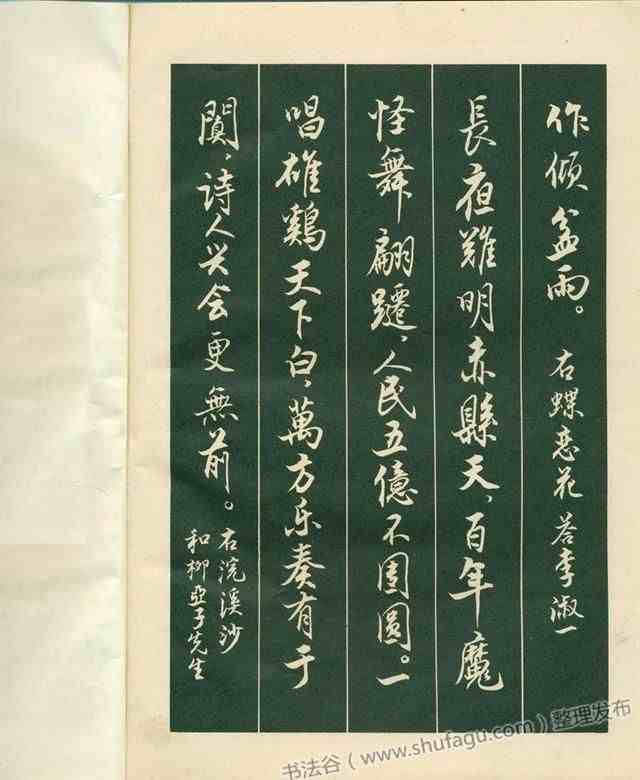 作傾盆雨。 右蝶恋花荅李淑一
長夜難明赤縣天，百年魔
怪舞翩躚，人民五億不團圓。一
唱雄鷄天下白，萬方乐奏有于
闐，诗人兴会更無前。
右浣溪沙
和柳亞子先生
书法谷（www.shufagu.com）整理发布